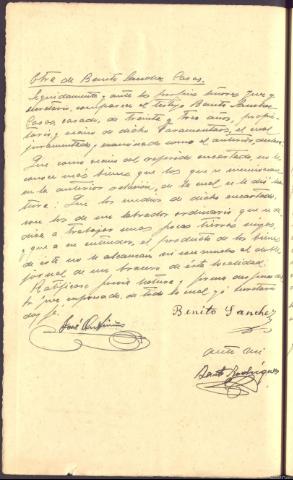 Otra de Benito Sanchez Casas.
Seguidamente, ante los propios señores Juez y
Secretario, comparece el testigo Benito Sanchez
Casas, casado, de treinta y tres años, propie-
tario, y vecino de dicho Paramentano, el cual
juramentado y examinado como el anterior, declara:
Que como vecino del referido encartado, no le
conoce más bienes que los que se mencionan
en la anterior relación, de la cual se le dió lec-
tura: Que los medios de dicho encartado,
son los de un labrador ordinario que se de-
dica a trabajar unas pocas tierras suyas,
y que a su entender, el producto de los bienes
de éste no le alcanzan ni con mucho el doble
jornal de un bracero de ésta localidad.
Ratificase previa lectura y firma despues de
lo que expresado, de todo lo cual yó Secretario
doy fé.
Benito Sanchez
ante mi